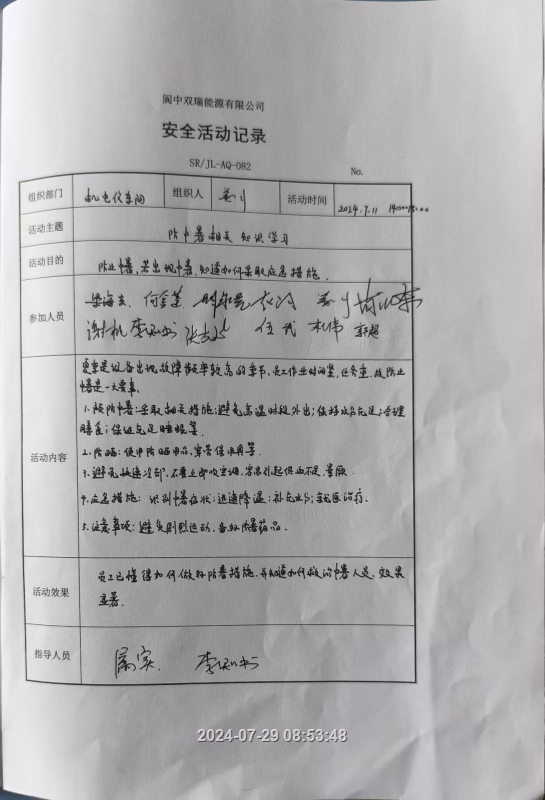 阆中双瑞能源有限公司
安全活动记录
SR/JL-AQ-082 No.
组织部门 机电仪车间 组织人 活动时间 2024.7.11
活动主题 防中暑相关知识学习
活动目的 防止中暑,若出现中暑,知道如何采取应急措施.
参加人员
谢帆 伍 杜伟 郭超
夏季是设备出现故障频率较高的季节,员工作业时间紧,任务重,故防止
中暑是一大要事.
1.预防中暑:采取相关措施;避免高温时段外出;保持水分充足;合理
膳食;保证充足睡眠等.
2.防晒:使用防晒用品,穿戴
3.避免快速冷却,不要立即吹空调,容易引起供血不足,晕厥.
4.应急措施:识别中暑症状;迅速降温;补充水分;就医治疗.
5.注意事项:避免剧烈运动.备好防暑药品.
活动内容
活动效果 员工已懂得如何做好防暑措施.并知道如何救治中暑人员.效果
显著.
指导人员 属实.
2024-07-29 08:53:48